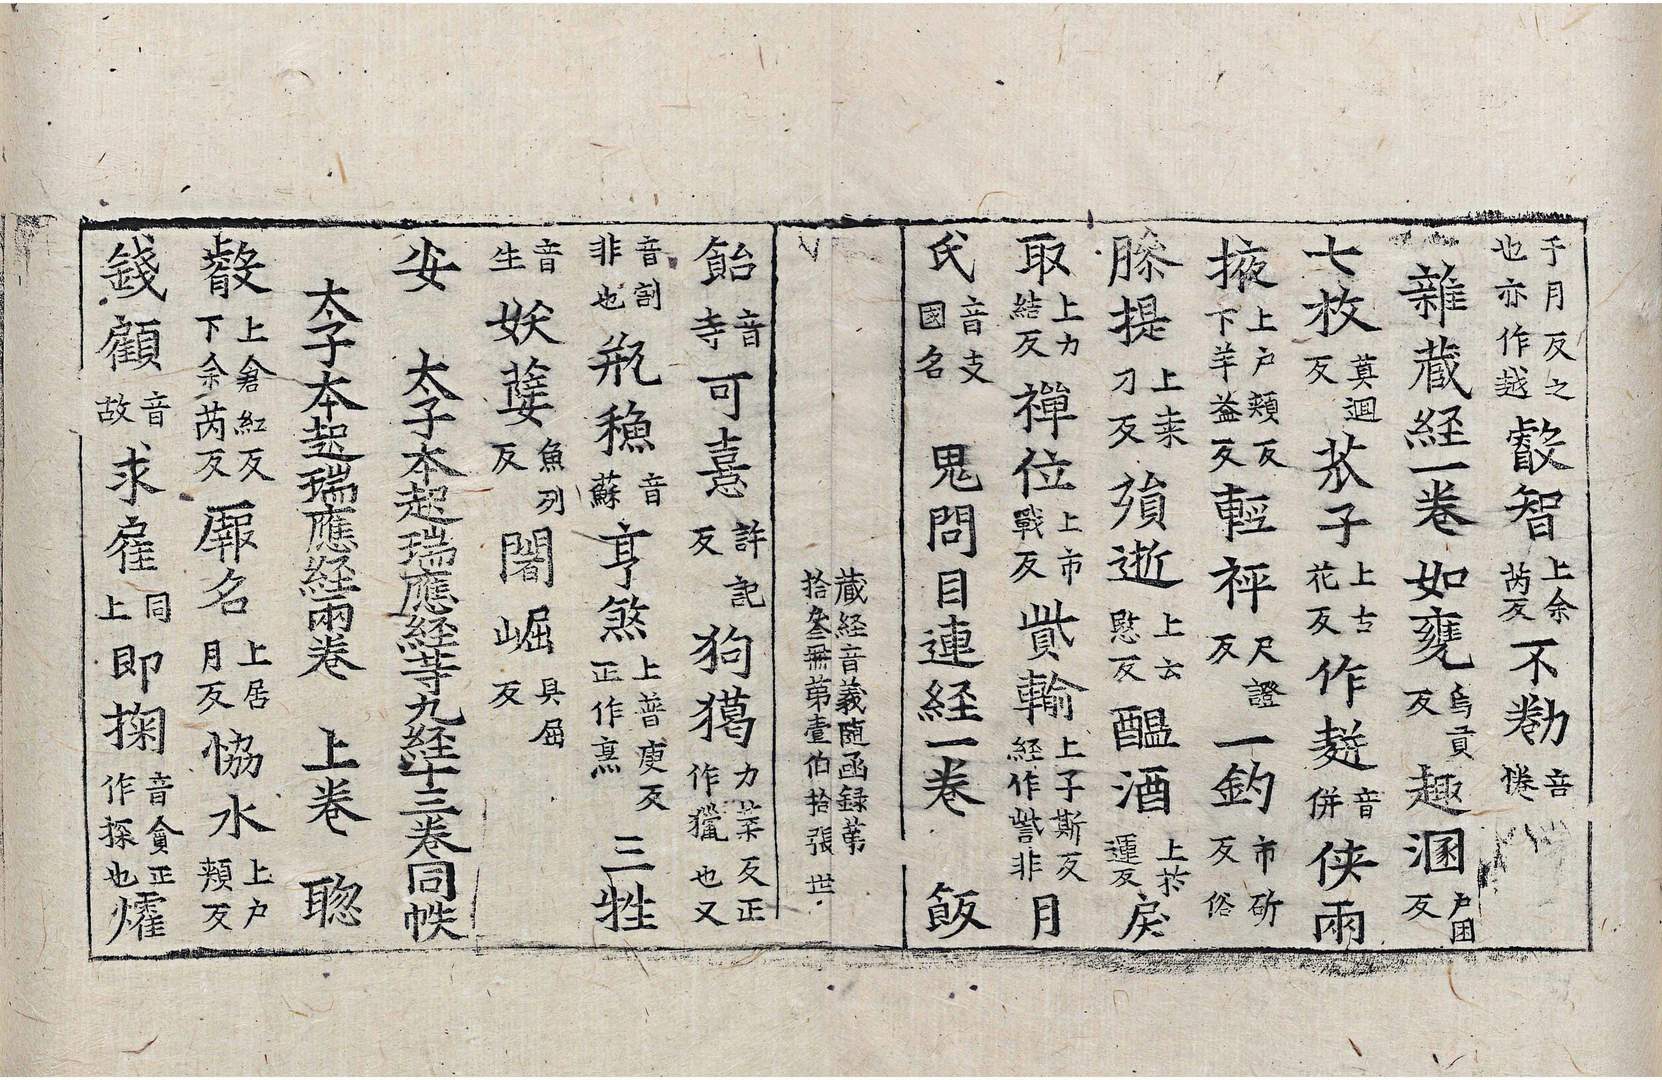 于月反之也亦作越㲊智上余芮反不勌音惓
雜蔵経一卷如甕烏貢反趣溷戶困反
七枚莫迴反芥子上古花反作麨音併俠兩
掖上户頰反下羊益反輕秤尺證反一釣市斫反俗
膝提上桒刁反殞逝上云愍反醖酒上扵運反戾
取上力結反禪位上市戰反貲輸上子斯反経作訾非月
氏音支國名 鬼問目連経一卷 飯
蔵経音義随函録苐
拾叁冊苐壹伯拾張 世
飴音寺可憙許記反狗獦力葉反正作獵也又
音割非也瓶穌音蘇亨煞上普庚反正作烹三牲
音生妖孽魚列反闍崛具屈反
安 太子本起瑞應経等九経十三卷同帙
太子本起瑞應経兩卷 上卷 聦
叡上倉紅反下余芮反厩名上居月反協水上户頰反
錢顧音故求雇同上即掬音匊正作探也㸌